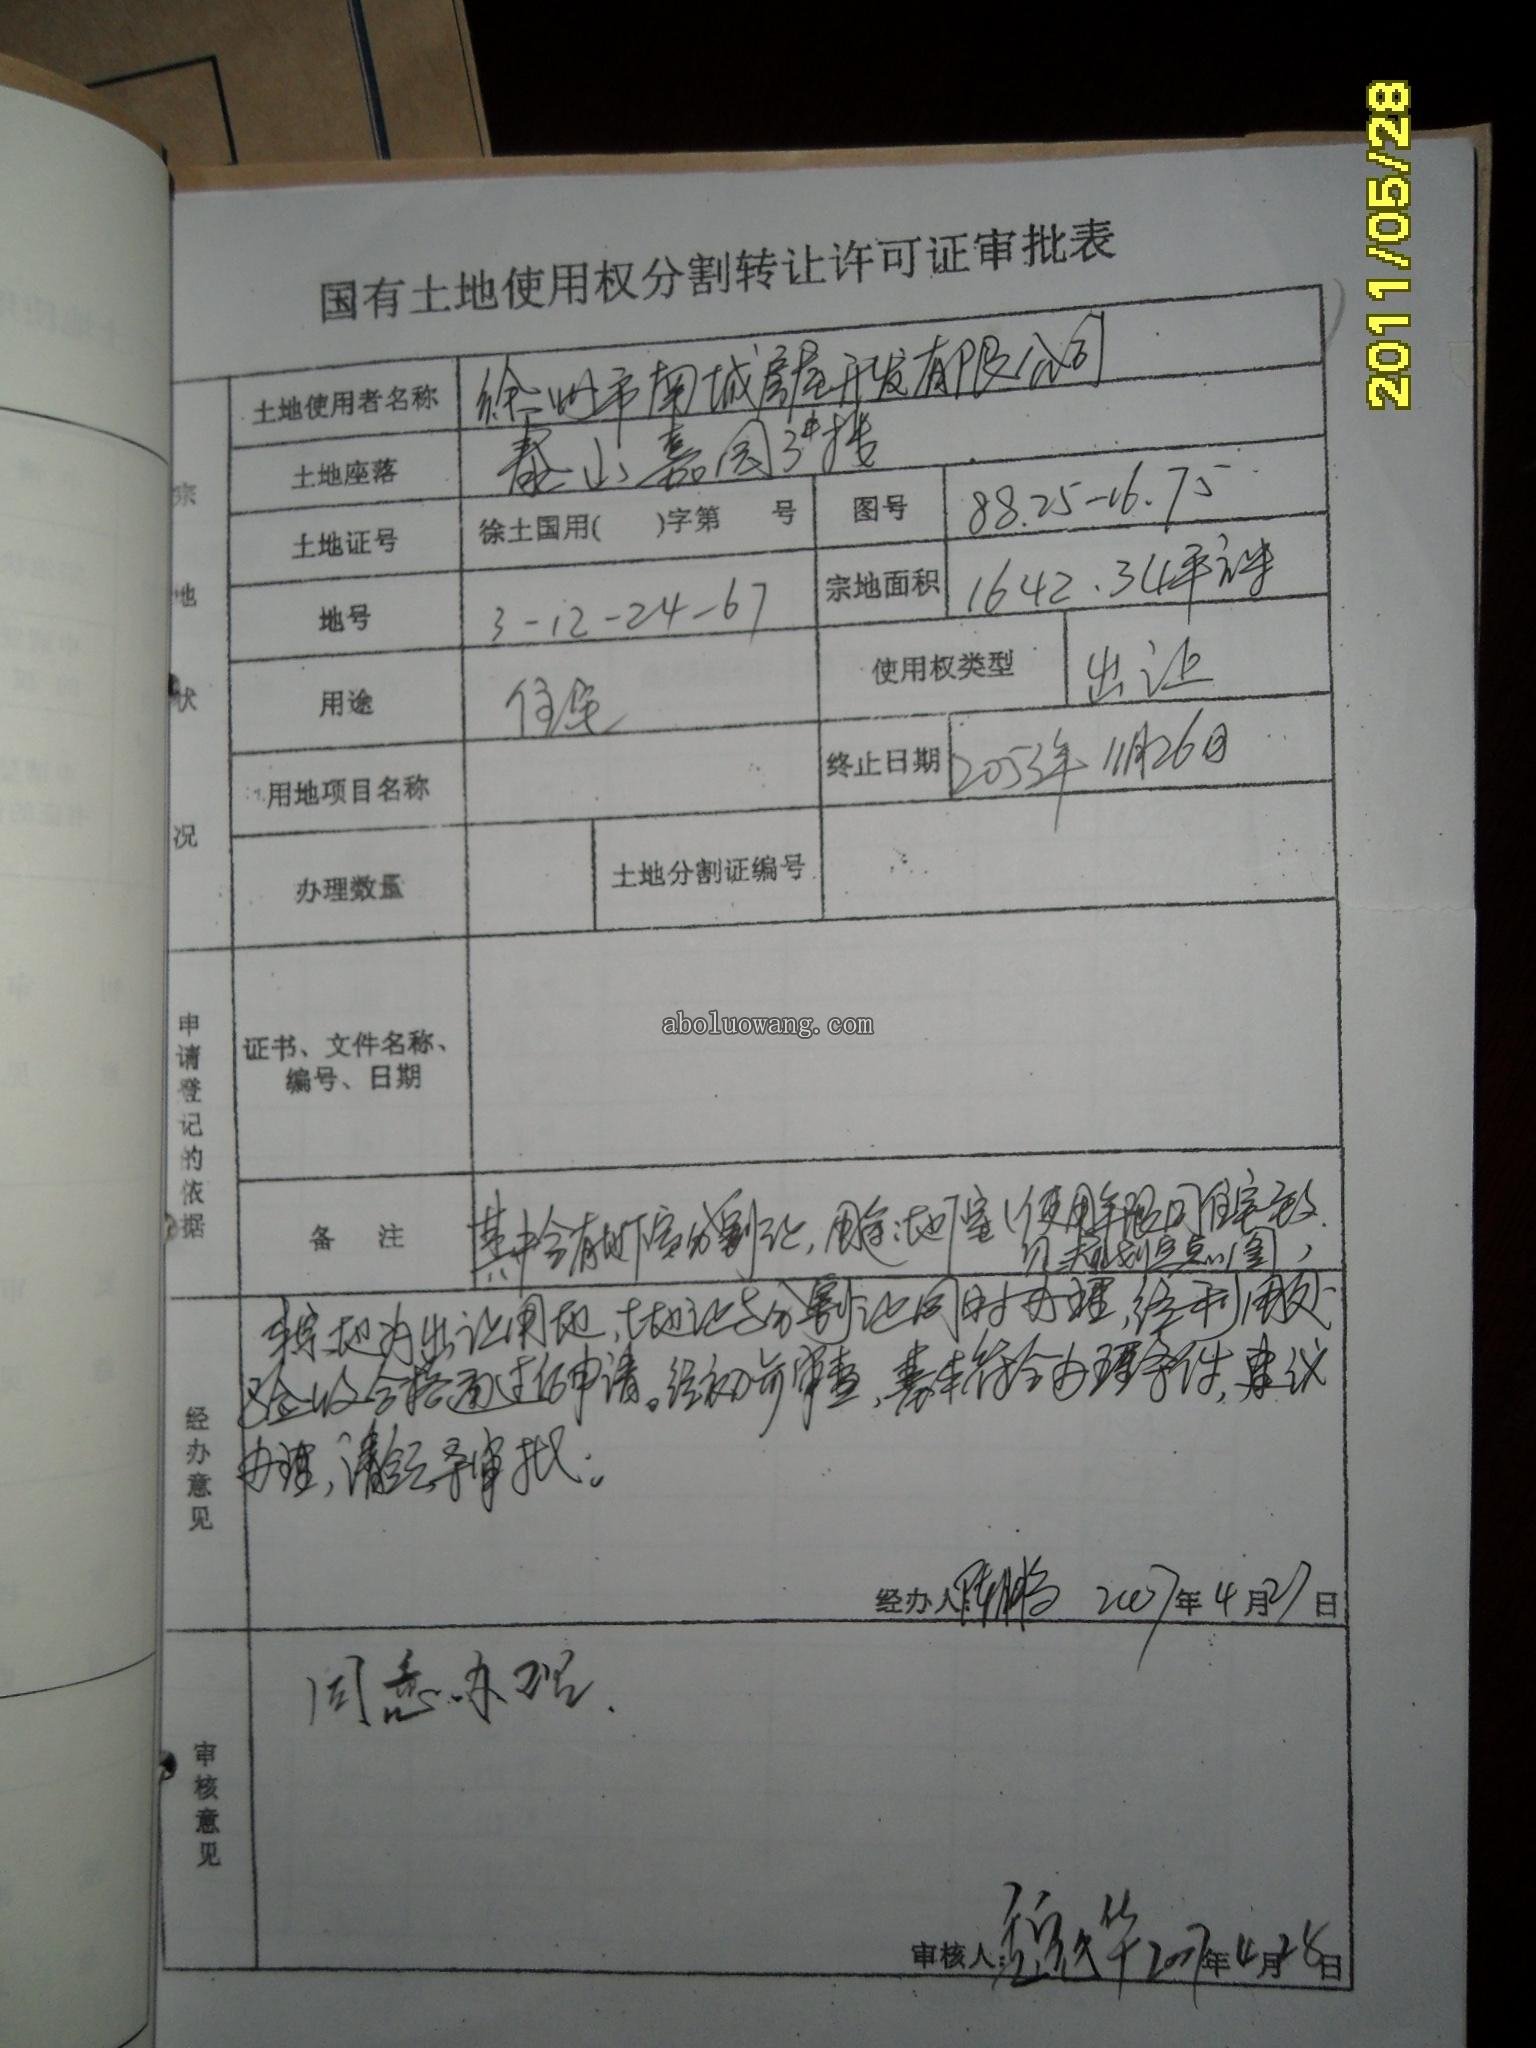 2011/05/28
国有土地使用权分割转让许可证审批表
宗地状况
土地使用者名称 徐州市南城房屋开发有限公司
土地座落 泰山嘉园3#楼
土地证号 徐土国用( )字第 号 图号 88.25-16.75
地号 3-12-24-67 宗地面积 1642.34平方米
用途 住宅 使用权类型 出让
用地项目名称 终止日期 2053年11月26日
办理数量 土地分割证编号
申请登记的依据
证书、文件名称、
编号、日期
aboluowang.com
备注 其中含有地下室分割证,用途:地下室(使用年限同住宅一致
经办意见
本宗地为出让用地,土地证与分割证同时办理,经利用处
验收合格通过后申请。经初步审查,基本符合办理条件,建议
办理,请领导审批。
经办人: 陈鹏 2007年4月27日
审核意见
同意办理.
审核人: 2007年4月28日